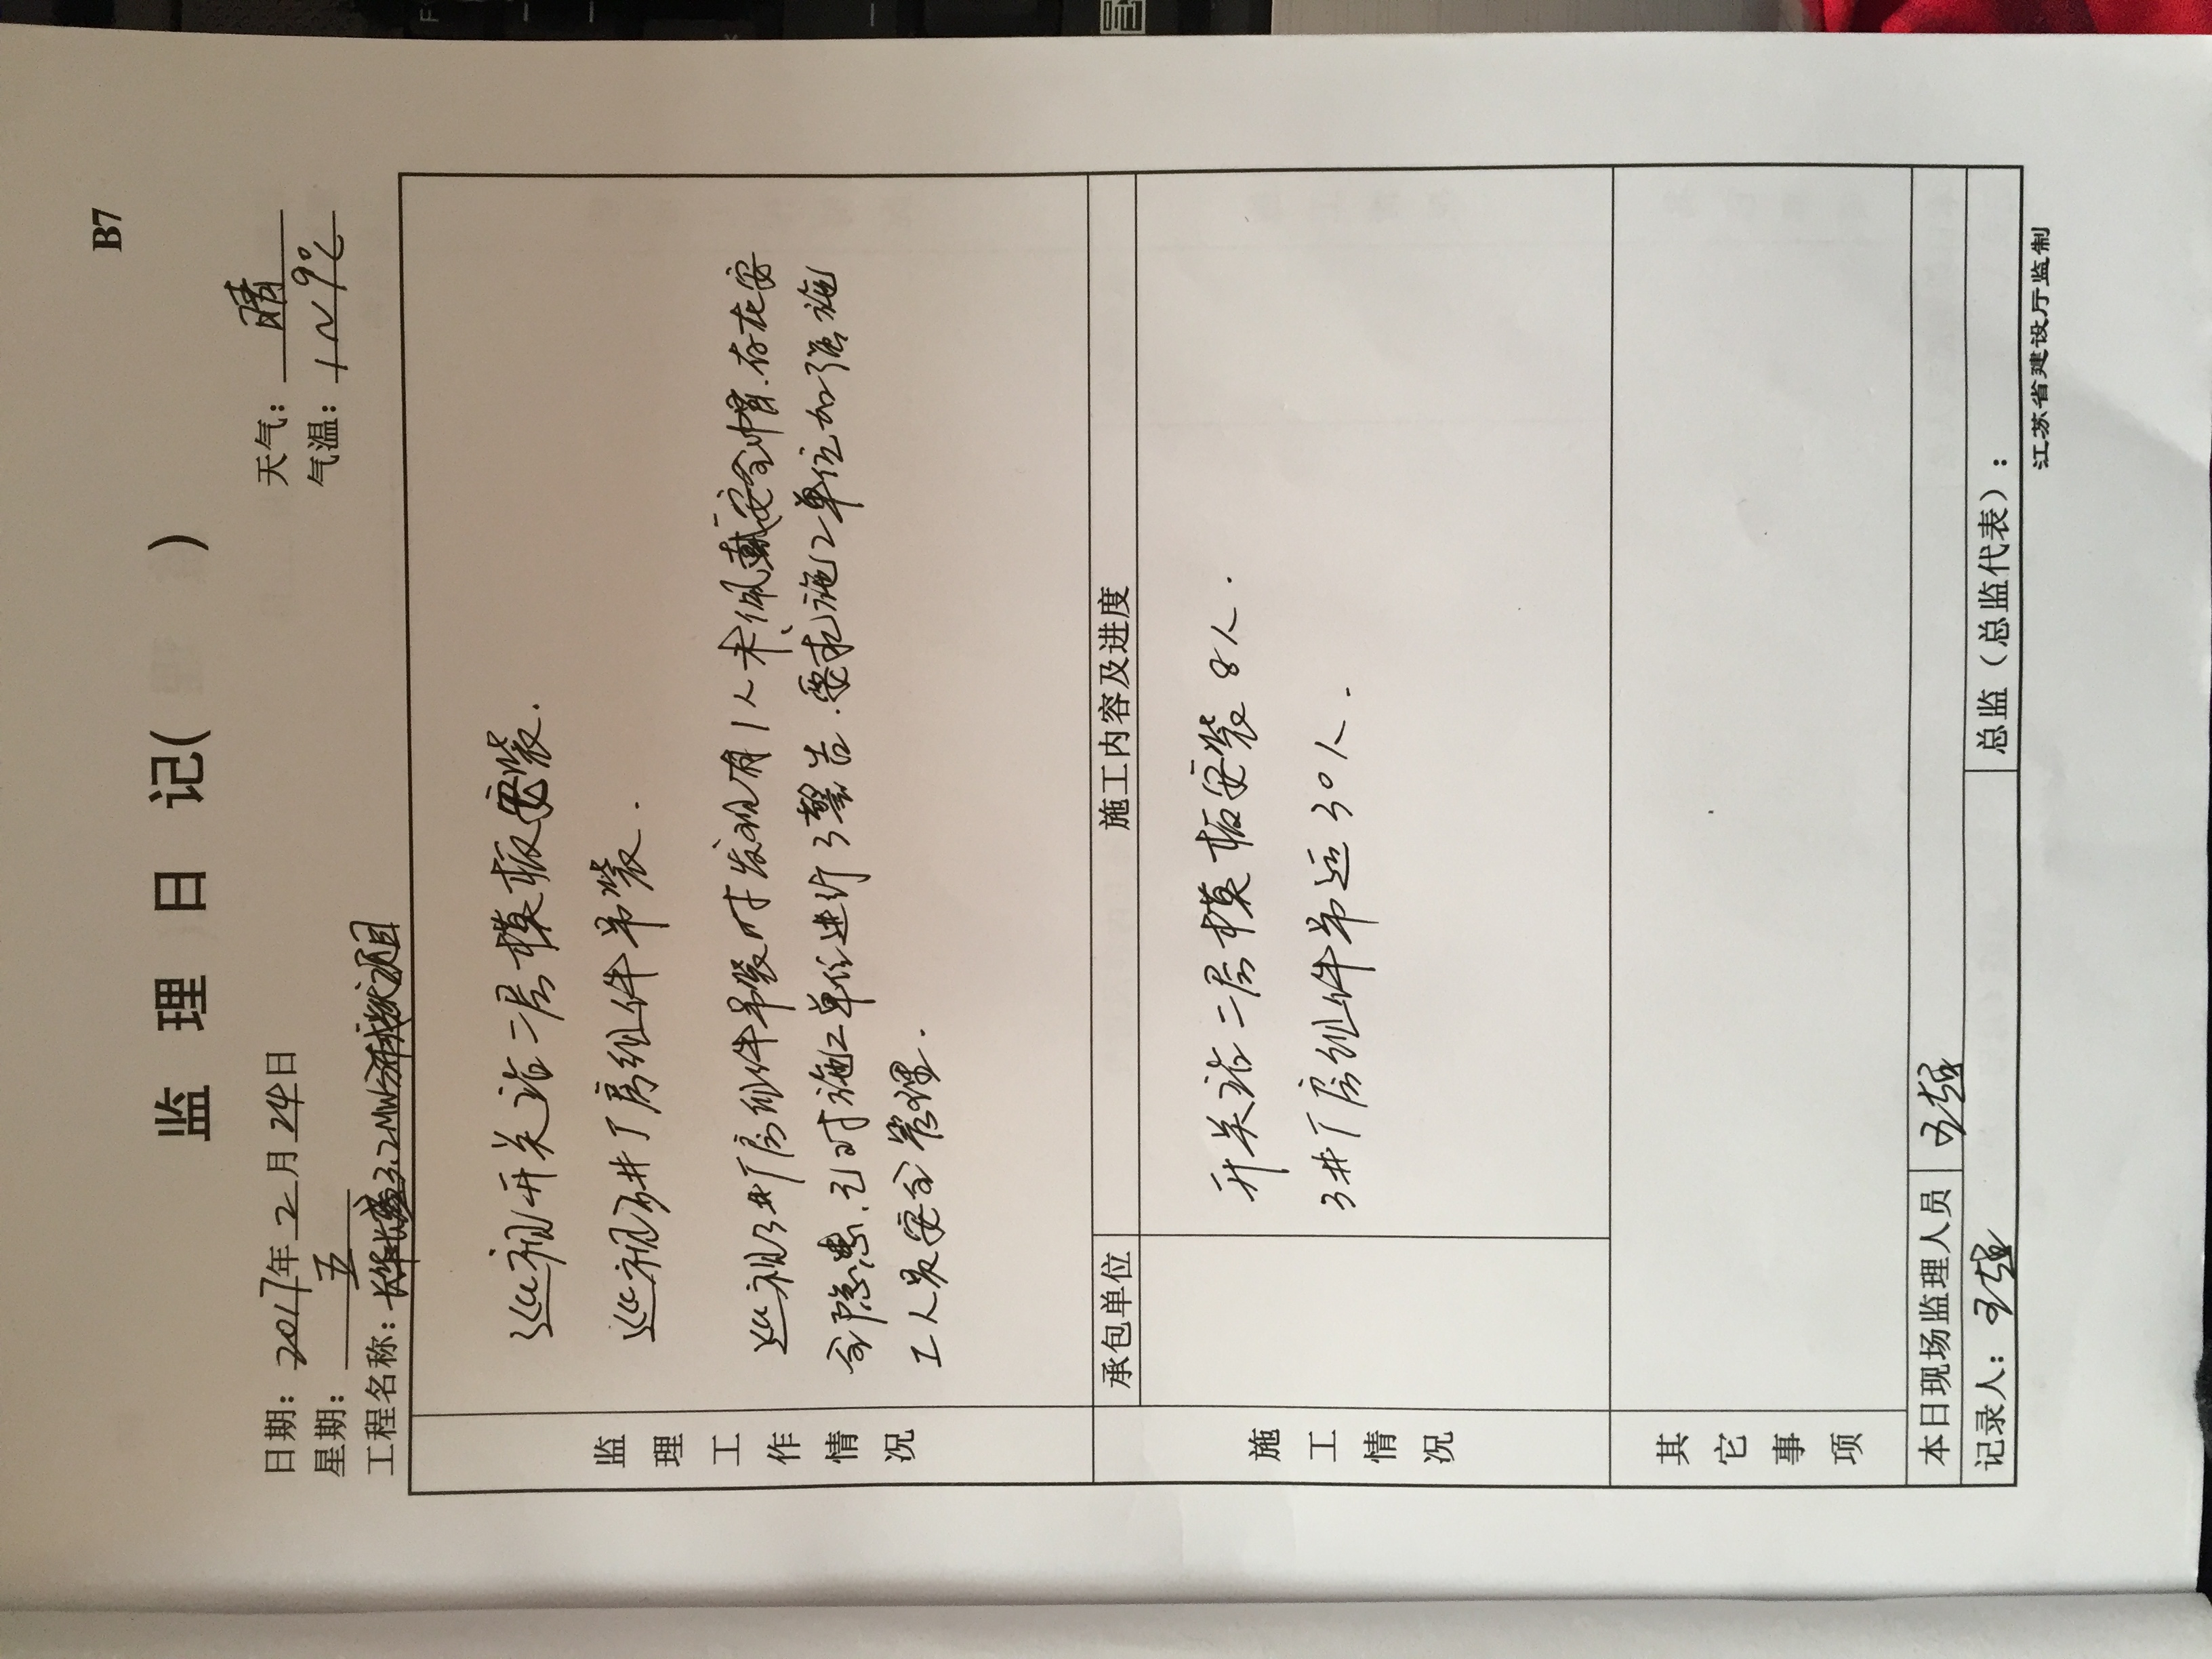 B7
监 理 日 记( )
日期：2017年2月24日 天气：晴
星期：五 气温：1~9℃
工程名称：3.2MW 项目
监理工作情况
巡视开关站二层模板安装.
巡视3#厂房组件吊装.
巡视3#厂房组件吊装时发现有1人未佩戴安全帽.存在安
全隐患.已对施工单位进行了警告.要求施工单位加强施
工人员安全管理.
施工情况
承包单位 施工内容及进度
开关站二层模板安装8人.
3#厂房组件吊运30人.
其它事项
本日现场监理人员
记录人： 总监（总监代表）：
江苏省建设厅监制